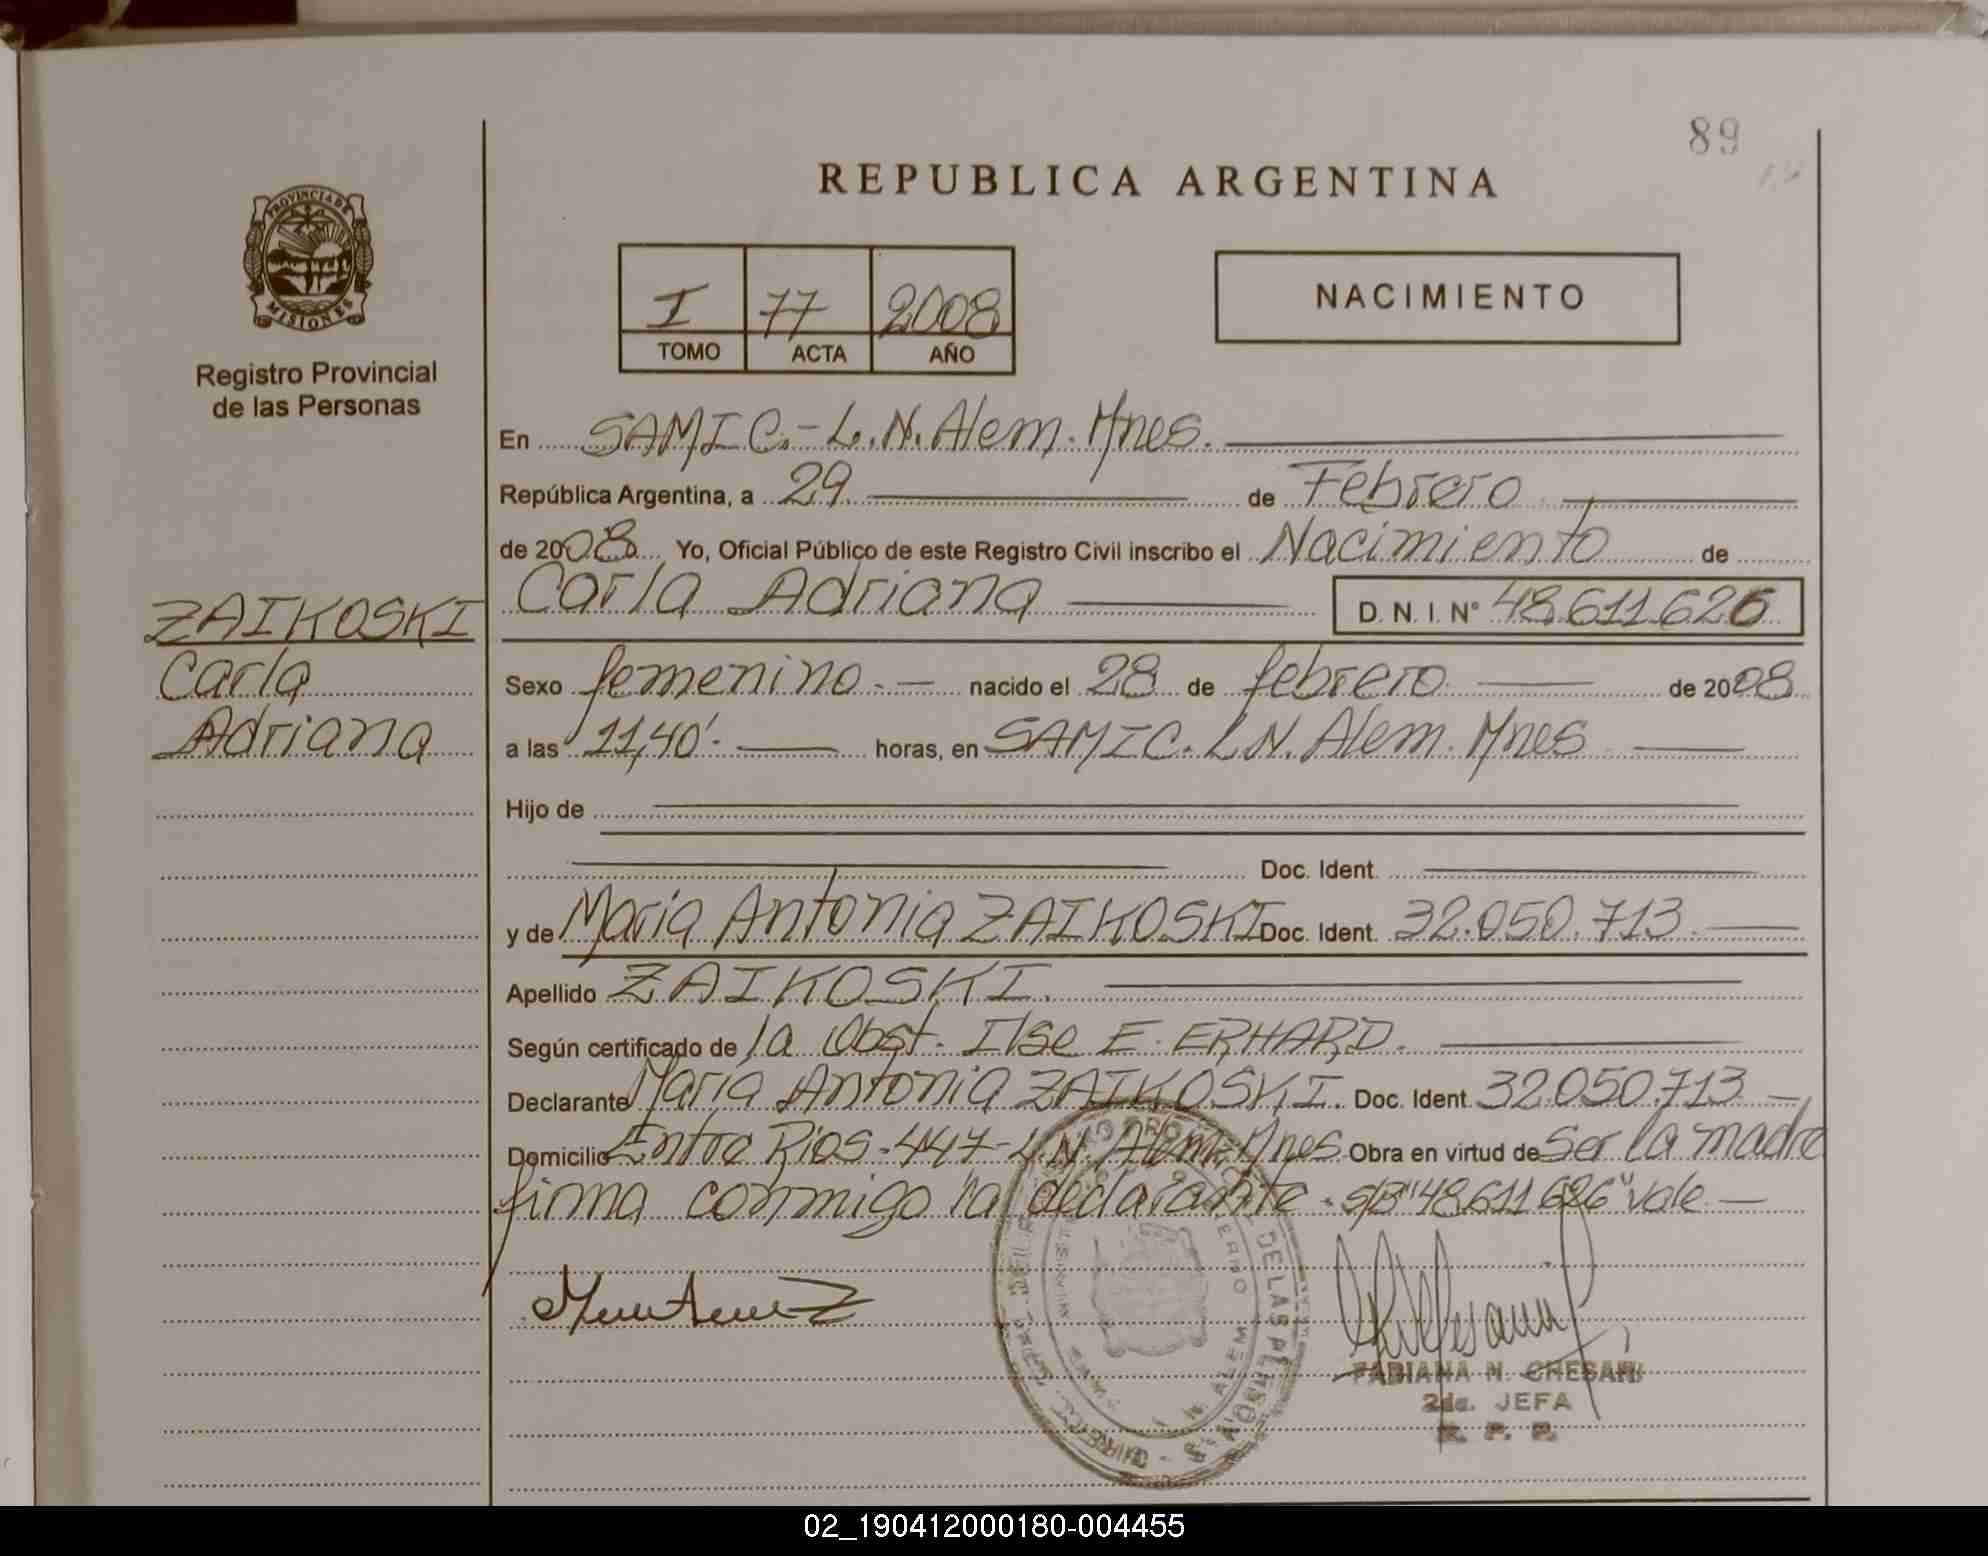 89
REPUBLICA ARGENTINA
PROVINCIA DE
MISIONES
Registro Provincial
de las Personas
I 77 2008
TOMO ACTA AÑO
NACIMIENTO
En SAMIC.- L.N. Alem. Mnes.
República Argentina, a 29 de Febrero
de 2008 Yo, Oficial Público de este Registro Civil inscribo el Nacimiento de
Carla Adriana D.N.I. Nº 48.611.626
ZAIKOSKI
Carla
Adriana
Sexo femenino.- nacido el 28 de febrero de 2008
a las 11,40'. horas, en SAMIC. L.N. Alem. Mnes
Hijo de
Doc. Ident.
y de Maria Antonia ZAIKOSKI Doc. Ident. 32.050.713.
Apellido ZAIKOSKI.
Según certificado de la Obst. Ilse E. ERHARD.
Declarante Maria Antonia ZAIKOSKI. Doc. Ident. 32.050.713
Domicilio Entre Rios-447-L.N. Alem. Mnes. Obra en virtud de Ser la madre
firma conmigo la declarante. s/B "48.611.626" Vale
DE LAS PERSONAS
ALEM
FABIANA N. CHESANI
2da. JEFA
R. P. P.
02_190412000180-004455